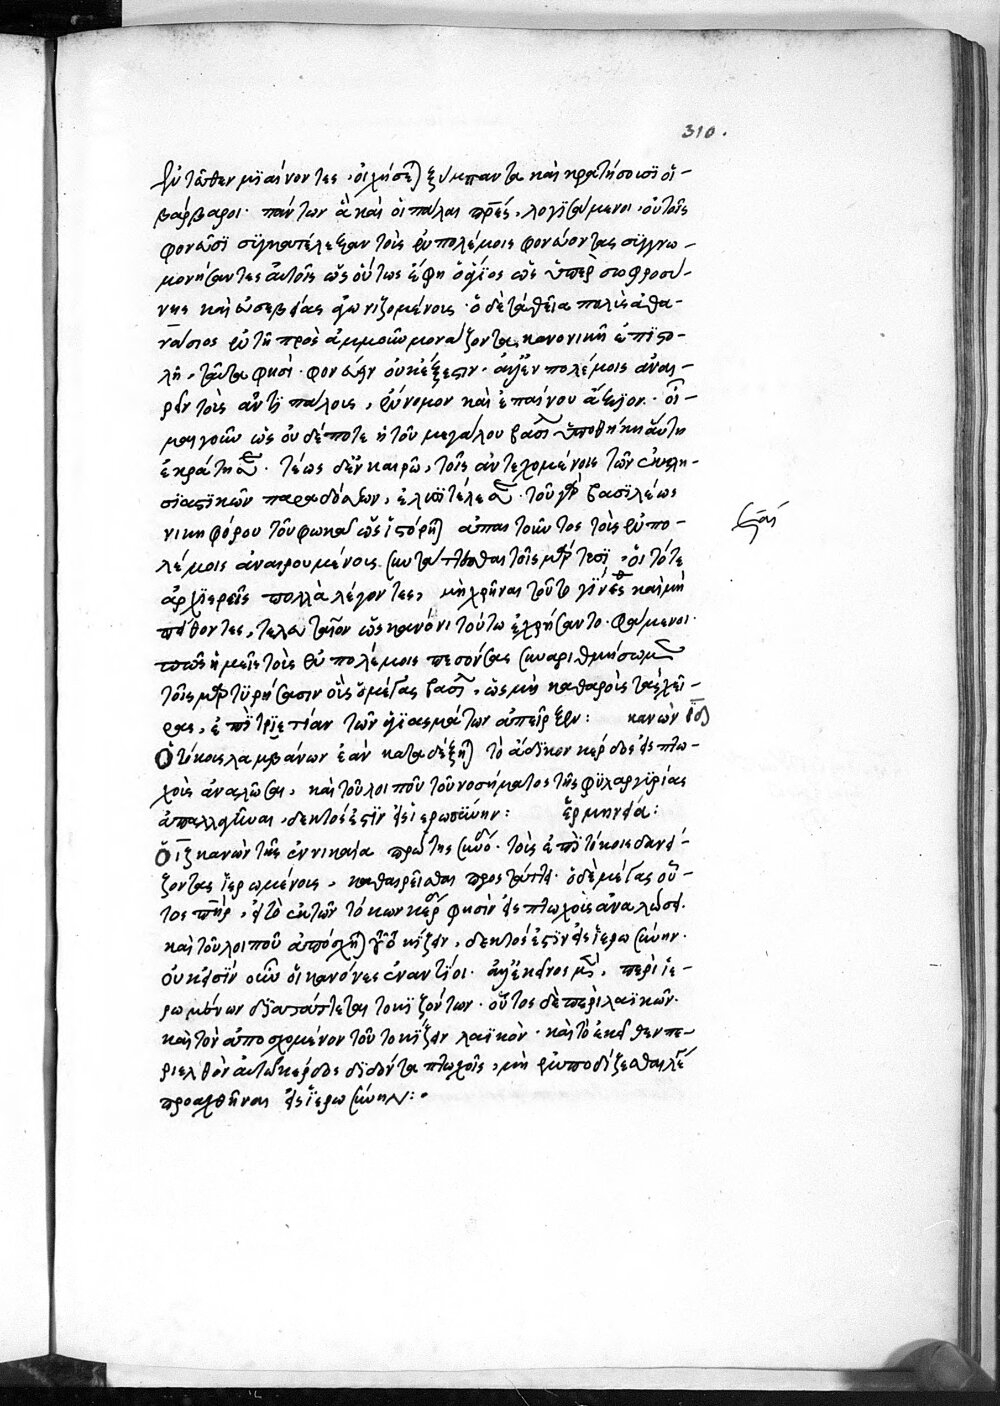 310.
ἐντεῦθεν μὴ αἴροντες, οἰχήσεται ξύμπαντα καὶ κρατήσουσιν οἱ
βάρβαροι· πάντων ἃ καὶ οἱ πάλαι πρες, λογισάμενοι, οὐ τοῖς
φονεῦσι συγκατέλεξαν τοὺς ἐν πολέμοις φονεύοντας συγγνω-
μονήσαντες αὐτοῖς ὡς οὗτος ἔφη ὁ ἅγιος ὡς ὑπὲρ σωφροσύ-
νης καὶ εὐσεβείας ἀγωνιζομένοις· ὁ δὲ τὰ θεῖα πολὺς ἀθα-
νάσιος ἐν τῇ πρὸς ἀμμοῦν μονάζοντα κανονικῇ ἐπιστο-
λῇ, ταῦτα φησί· φονεύειν οὐκ ἔξεστιν· ἀλλ' ἐν πολέμοις ἀναι-
ρεῖν τοὺς ἀντιπάλους, ἔννομον καὶ ἐπαίνου ἄξιον· οἶ-
μαι γοῦν ὡς οὐδέποτε ἡ τοῦ μεγάλου βασι ὑποθήκη αὕτη
ἐκράτησε· τέως δ' ἐν καιρῶ, τοῖς ἀντεχομένοις τῶν ἐκκλη-
σιαστικῶν παραδόσεων, ἐλυσιτέλεσε· τοῦ γὰρ βασιλέως
νικηφόρου τοῦ φωκᾶ ὡς ἱστόρηται ἀπαιτοῦντος τοὺς ἐν πο-
λέμοις ἀναιρουμένους συντάττεσθαι τοῖς μάρτυσι, οἱ τότε
ἀρχιερεῖς πολλὰ λέγοντες, μὴ χρῆναι τοῦτο γίνεσθαι καὶ μὴ
πείθοντες, τελευταῖον ὡς κανόνι τούτω ἐχρήσαντο· φάμενοι·
πῶς ἡμεῖς τοὺς ἐν πολέμοις πεσόντας συναριθμήσωμεν
τοῖς μαρτυρήσασιν οὓς ὁ μέγας βασι, ὡς μὴ καθαροὺς τὰς χεῖ-
ρας, ἐπὶ τριετίαν τῶν ἁγιασμάτων ἀπεῖρξεν: κανὼν ιδ
Ὁ τόκους λαμβάνων ἐὰν καταδέξηται τὸ ἄδικον κέρδος εἰς πτω-
χοὺς ἀναλῶσαι, καὶ τοῦ λοιποῦ τοῦ νοσήματος τῆς φιλαργυρίας
ἀπαλλαγῆναι, δεκτός ἐστιν εἰς ἱερωσύνην: ἑρμηνεία:
Ὁ ιζ κανὼν τῆς ἐν νικαία πρώτης συνόδ· τοὺς ἐπὶ τόκοις δανεί-
ζοντας ἱερωμένους, καθαιρεῖσθαι προστάττει· ὁ δὲ μέγας οὗ-
τος πηρ, εἰ τὸ ἐκ τῶν τόκων κέρδ φησὶν εἰς πτωχοὺς ἀναλώσει·
καὶ τοῦ λοιποῦ ἀπόσχηται τοῦ τοκίζειν, δεκτός ἐστιν εἰς ἱερωσύνην·
οὐκ εἰσὶν οὖν οἱ κανόνες ἐναντίοι· ἀλλ' ἐκεῖνος μὲν, περὶ ἱε-
ρωμένων διατάττεται τοκιζόντων· οὗτος δὲ περὶ λαϊκῶν·
καὶ τὸν ἀποσχόμενον τοῦ τοκίζειν λαϊκὸν· καὶ τὸ ἐκεῖθεν πε-
ριελθὸν αὐτῶ κέρδος διδόντα πτωχοῖς, μὴ ἐμποδίζεσθαι λέγ
προαχθῆναι εἰς ἱερωσύνην:·